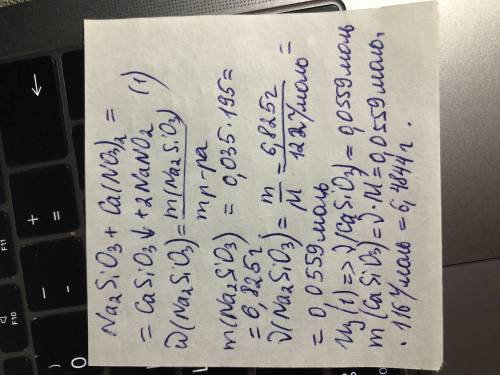 Na₂SiO₃ + Ca(NO₃)₂ =
= CaSiO₃↓ + 2NaNO₂ (1)
ω(Na₂SiO₃) = m(Na₂SiO₃)
mр-ра
m(Na₂SiO₃) = 0,035·195 =
= 6,825г
ν(Na₂SiO₃) = m/M = 6,825г/122г/моль =
= 0,0559моль
Из (1) => ν(CaSiO₃) = 0,0559моль
m(CaSiO₃) = ν·M = 0,0559моль·
·116г/моль = 6,4844г.
F11
F10
+
=
-
)
0